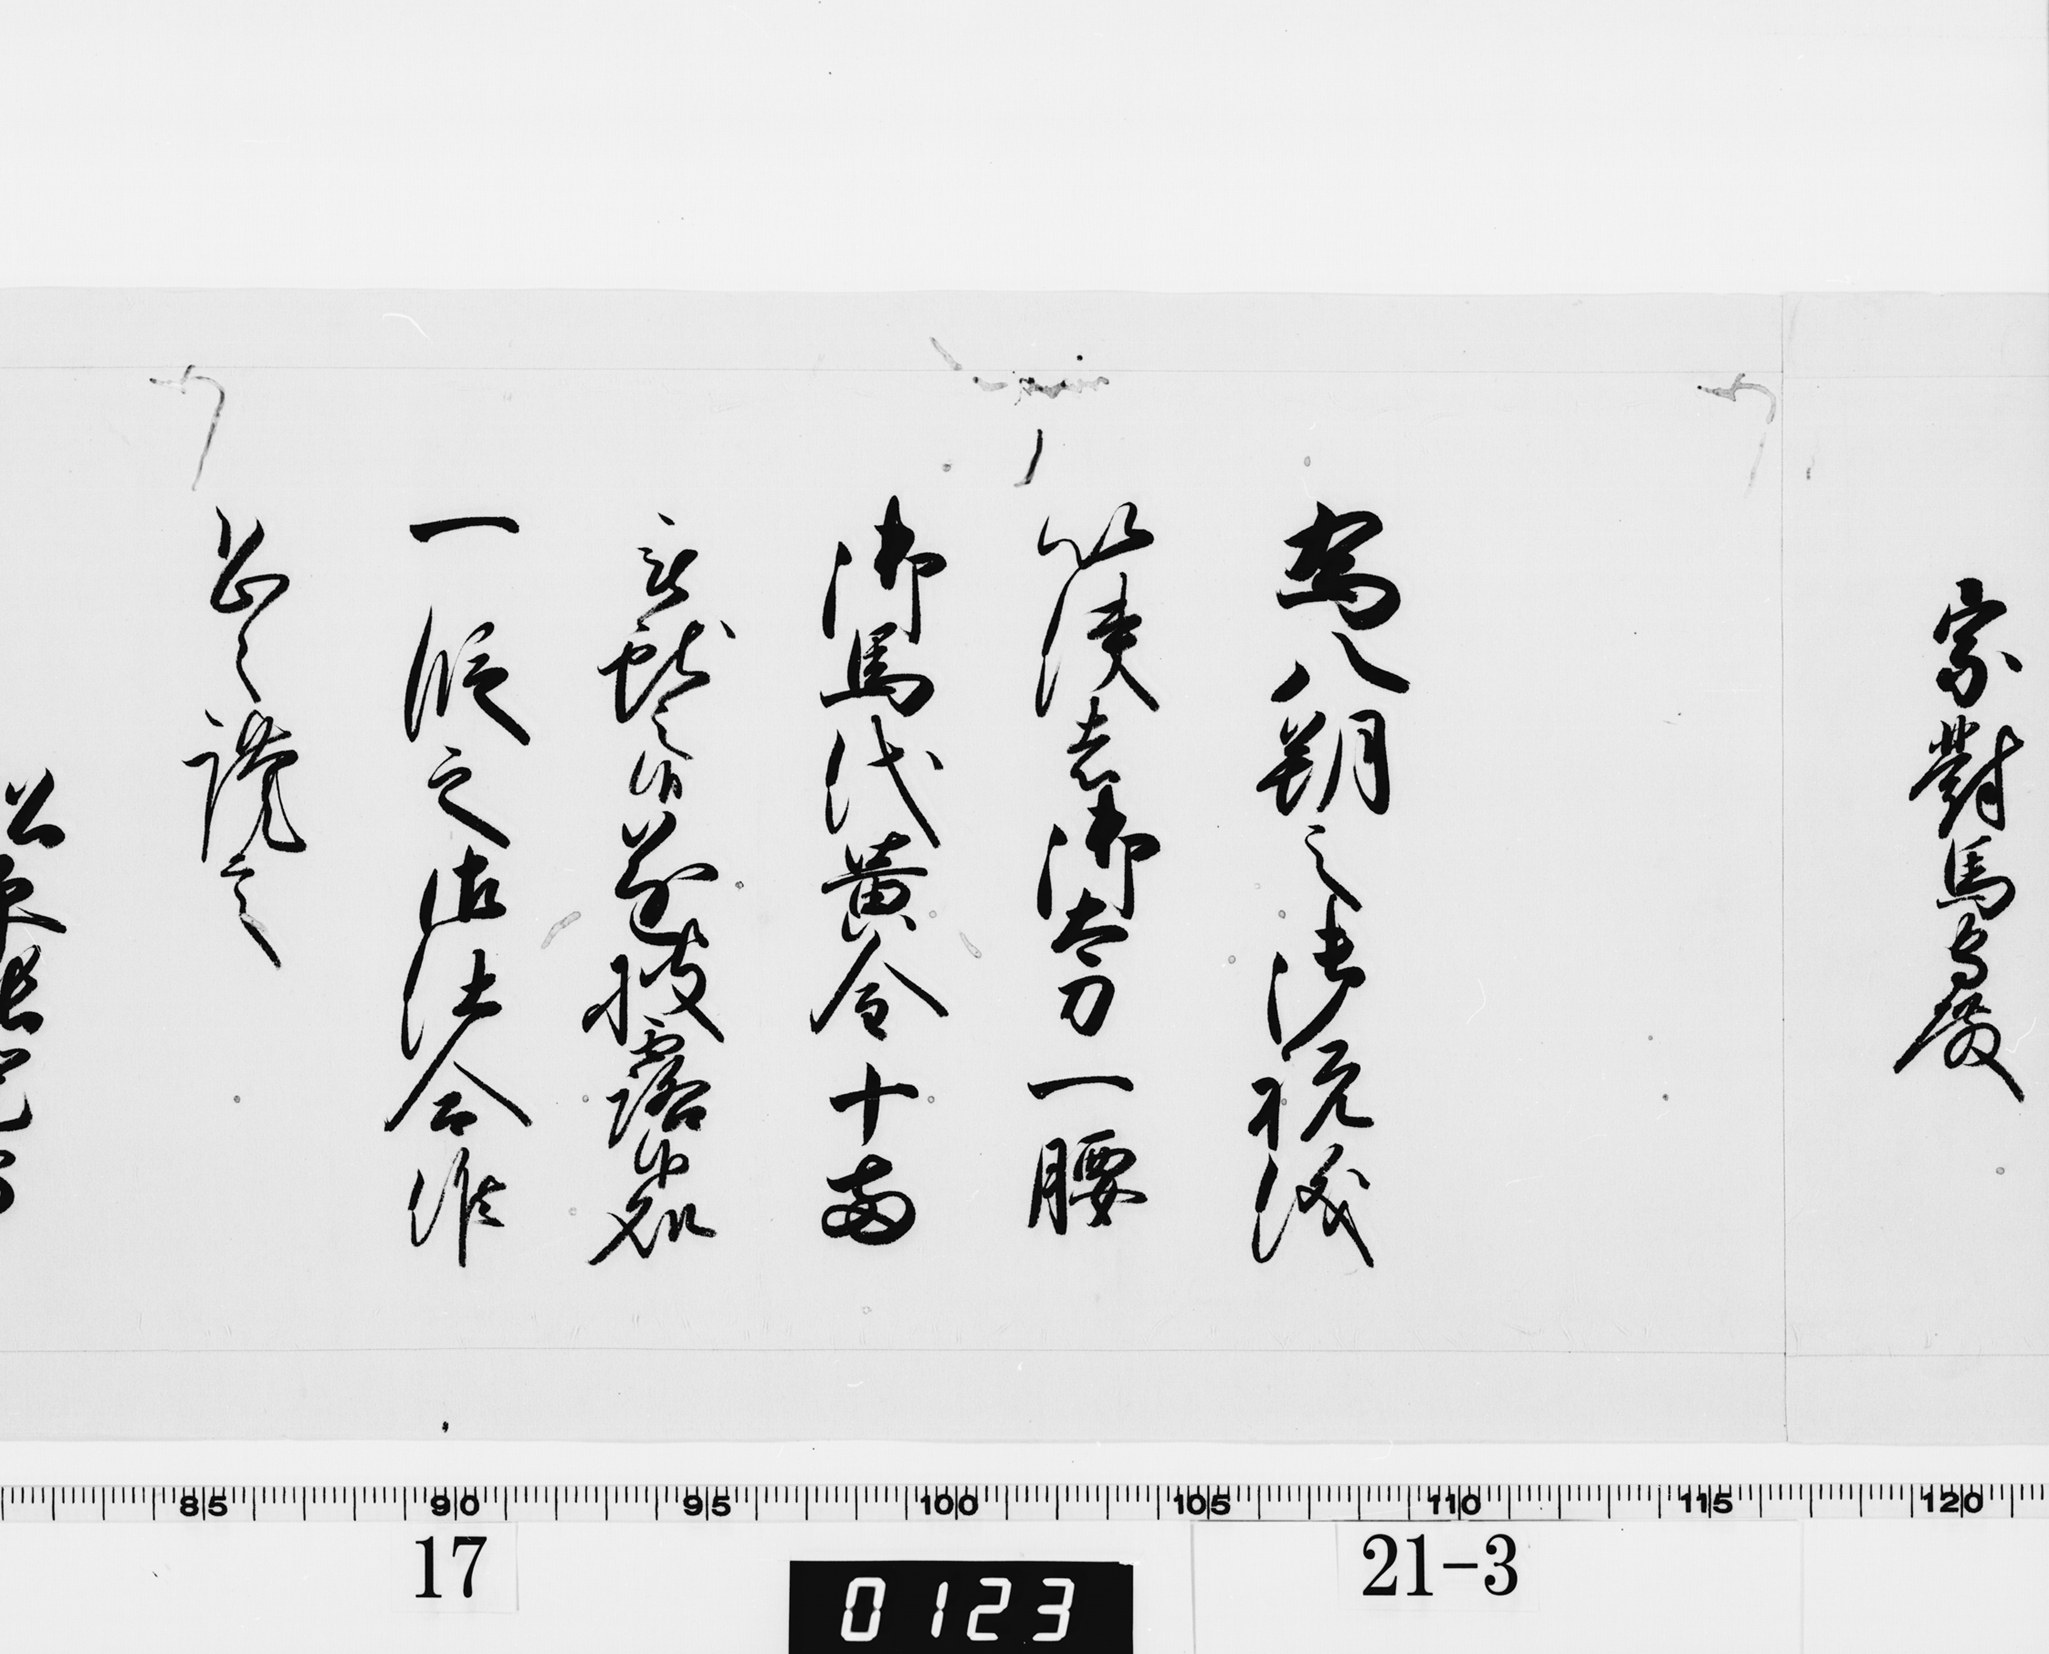 宗對馬守殿
為八朔之御祝儀
以使者御太刀一腰
御馬代黄金十両
被獻之候遂披露候處
一段之御仕合候
恐々謹言
85 90 95 100 105 110 115 120
17
0123
21-3